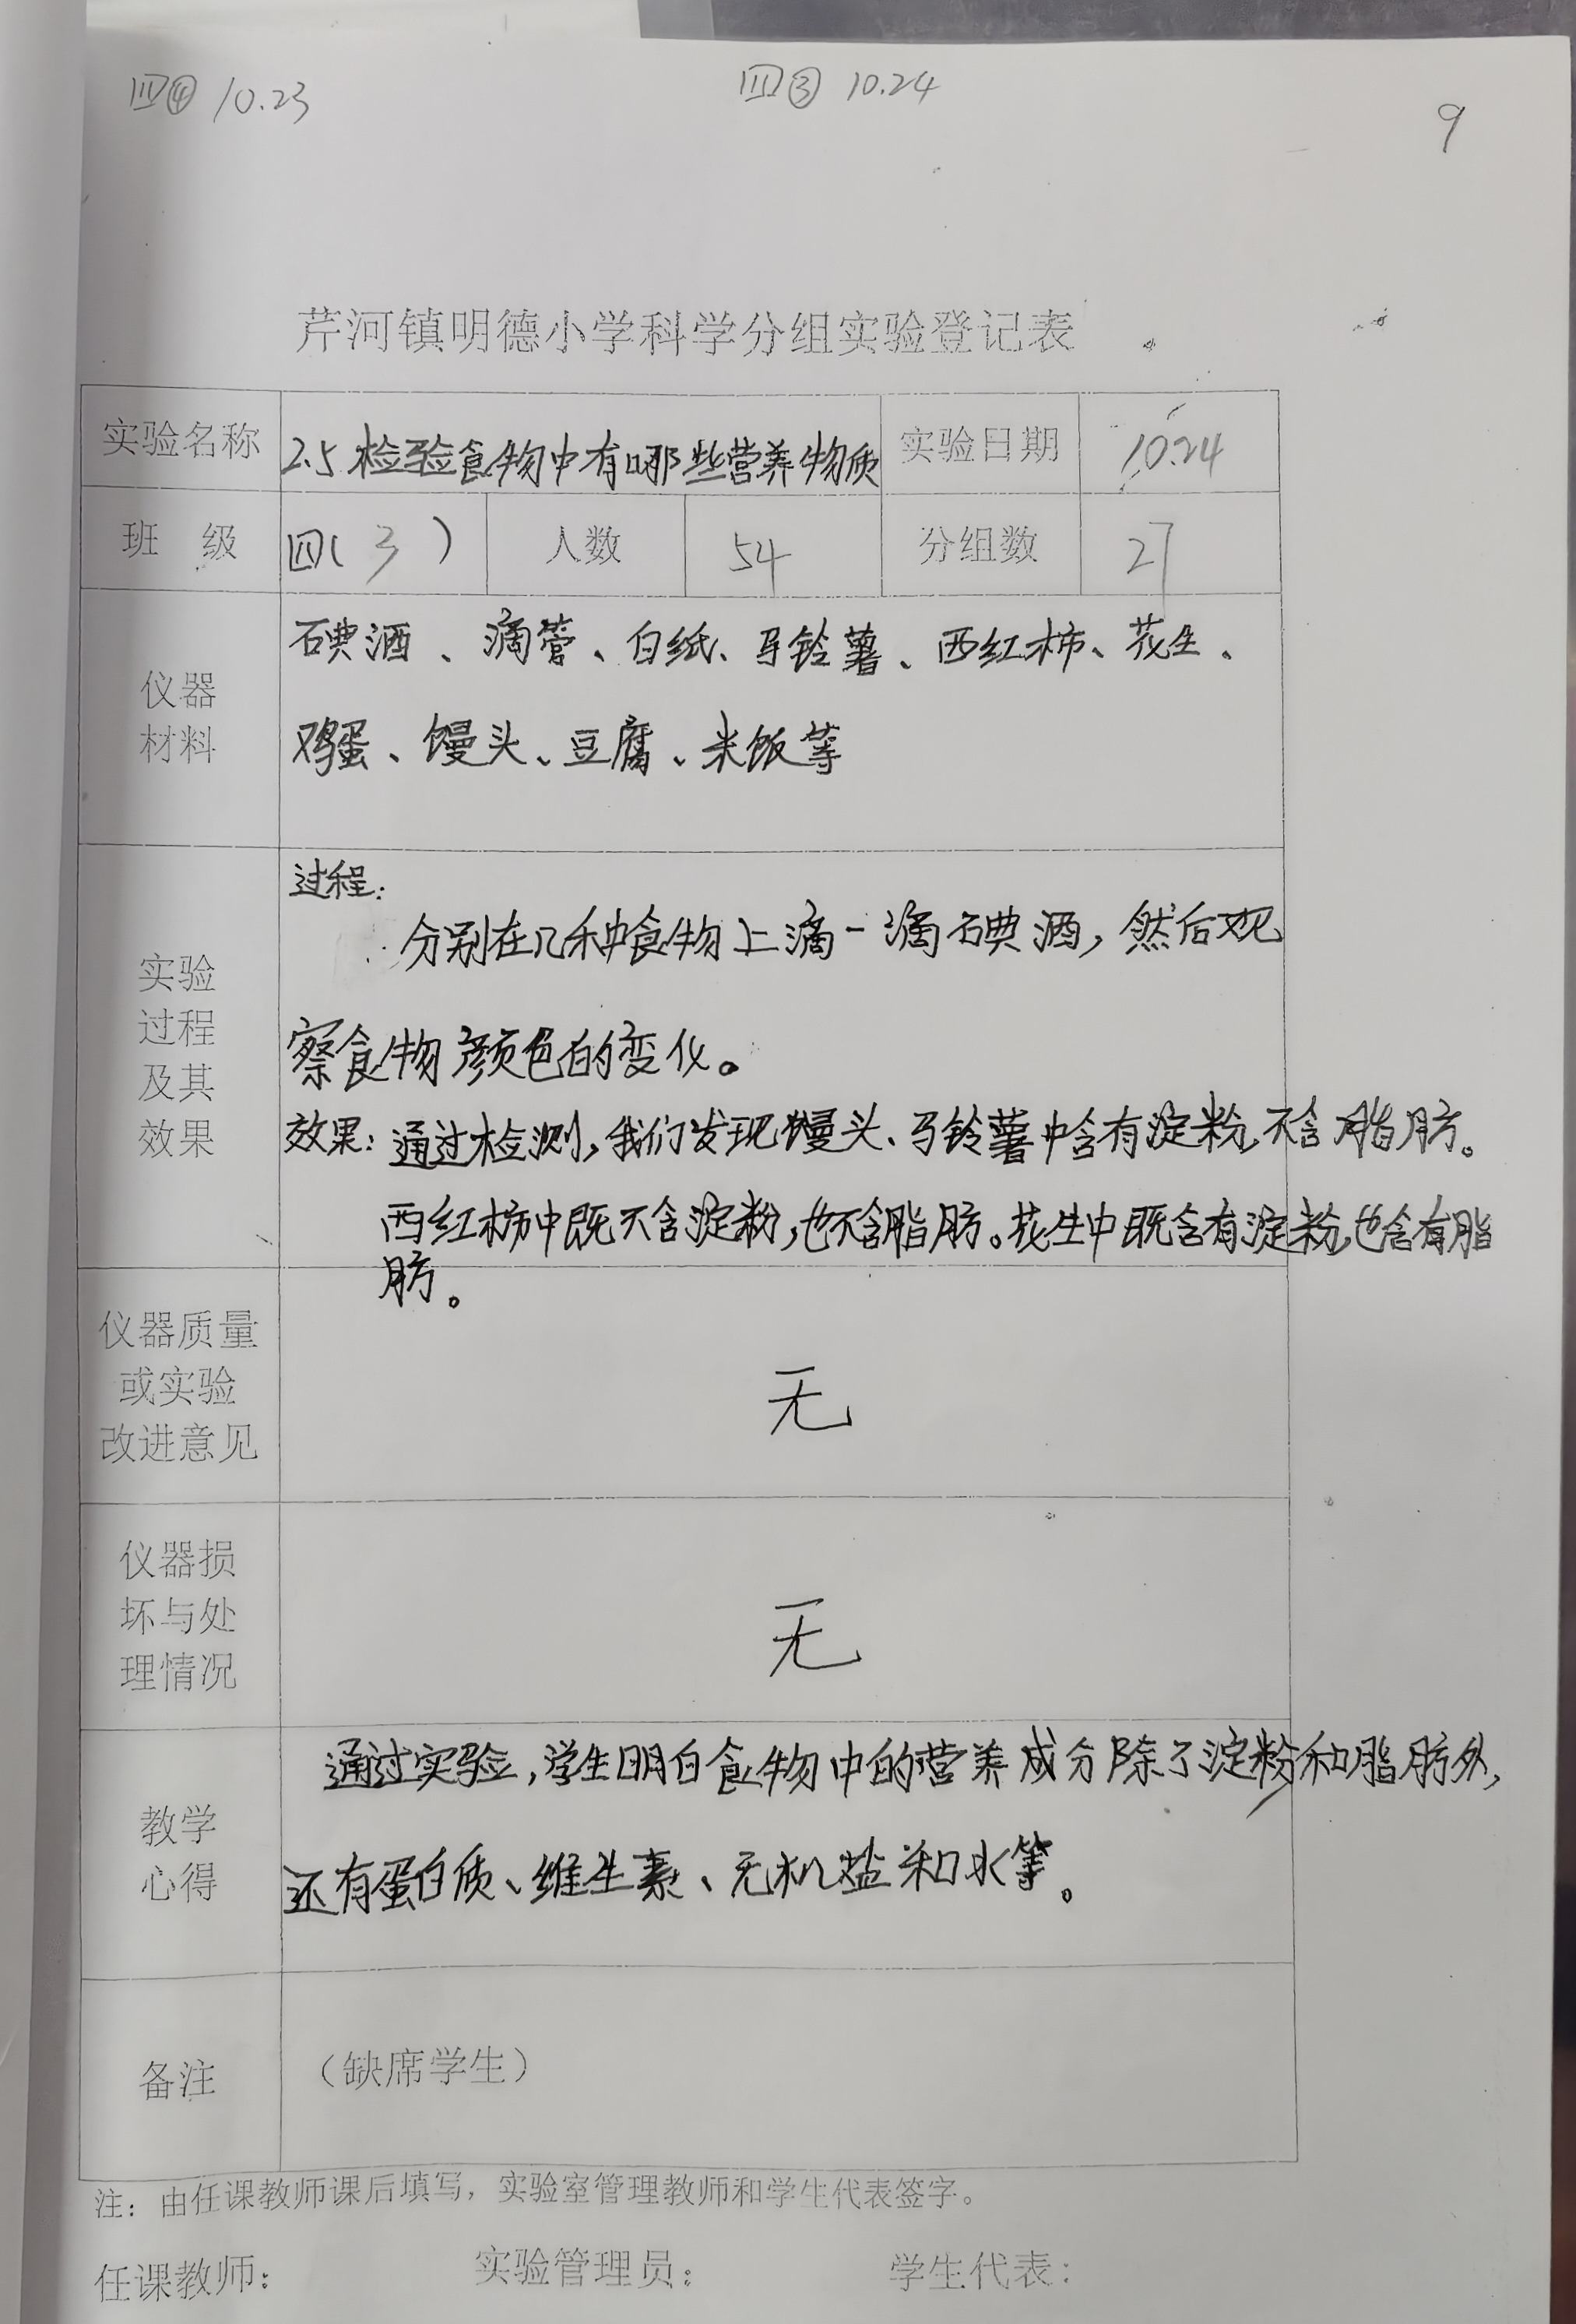 四④ 10.23
四③ 10.24
9
芹河镇明德小学科学分组实验登记表
实验名称 2.5 检验食物中有哪些营养物质 实验日期 10.24
班 级 四(3) 人数 54 分组数 27
仪器
材料
碘酒、滴管、白纸、马铃薯、西红柿、花生、
鸡蛋、馒头、豆腐、米饭等
实验
过程
及其
效果
过程:
分别在几种食物上滴一滴碘酒,然后观
察食物颜色的变化。
效果:通过检测,我们发现馒头、马铃薯中含有淀粉,不含脂肪。
西红柿中既不含淀粉,也不含脂肪。花生中既含有淀粉,也含有脂
肪。
仪器质量
或实验
改进意见
无
仪器损
坏与处
理情况
无
教学
心得
通过实验,学生明白食物中的营养成分除了淀粉和脂肪外,
还有蛋白质、维生素、无机盐和水等。
备注
(缺席学生)
注:由任课教师课后填写,实验室管理教师和学生代表签字。
任课教师: 实验管理员: 学生代表: